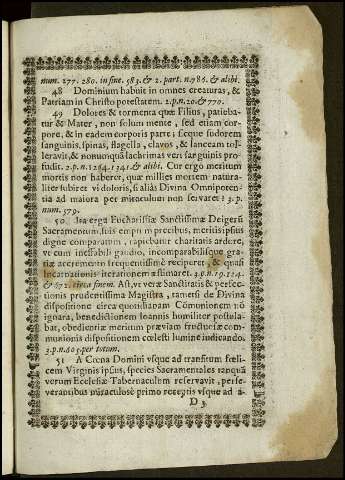 num. 277. 280. in fine. 583. & 2. part. n. 786. & alibi.
48 Dominium habuit in omnes creaturas, &
Patriam in Christo potestatem. 2. p. n. 20. & 770.
49 Dolores & tormenta quæ Filius, patieba-
tur & Mater, non solum mente, sed etiam cor-
pore, & in eadem corporis parte; sæque sudorem
sanguinis, spinas, flagella, clavos, & lanceam tol-
leravit, & nonumquã lacarimas veri sanguinis pro-
fudit. 2. p. n. 1264. 1341. & alibi. Cur ergo meritum
mortis non haberet, quæ millies mortem natura-
liter subiret vi doloris, si aliàs Divina Omnipoten-
tia ad maiora per miraculum non servaret? 3. p.
num. 379.
50 Ita erga Eucharistiæ Sanctissimæ Deigerũ
Sacramentum, suis empium precibus, meritis ipsius
digne comparatum, rapiebatur charitatis ardore,
vt cum ineffabili gaudio, incomparabilisque gra-
tiæ accremento frequentissimè reciperet, & quasi
Incarnationis iterationem æstimaret. 3. p. n. 19. 124.
& 672. circa finem. Ast, vt veræ Sanctitatis & perfec-
tionis prudentissima Magistra, tametsi de Divina
dispositione circa quotidianam Communionem nõ
ignara, benedictionem Ioannis humiliter postula-
bat, obedientiæ meritum præviam fructuræ com-
munionis dispositionem cœlesti lumine indicando.
3. p. n. 405. per totum.
51 A Cœna Domini vsque ad transitum fœli-
cem Virginis ipsius, species Sacramentales tanquã
verum Ecclesiæ Tabernaculem reservavit, perse-
verantibus miraculosè primo receptis vsque ad a-
D 3